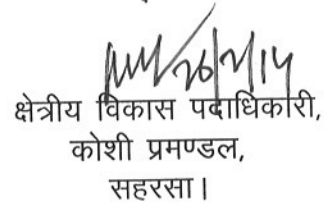 26/2/14
क्षेत्रीय विकास पदाधिकारी,
कोशी प्रमण्डल,
सहरसा।